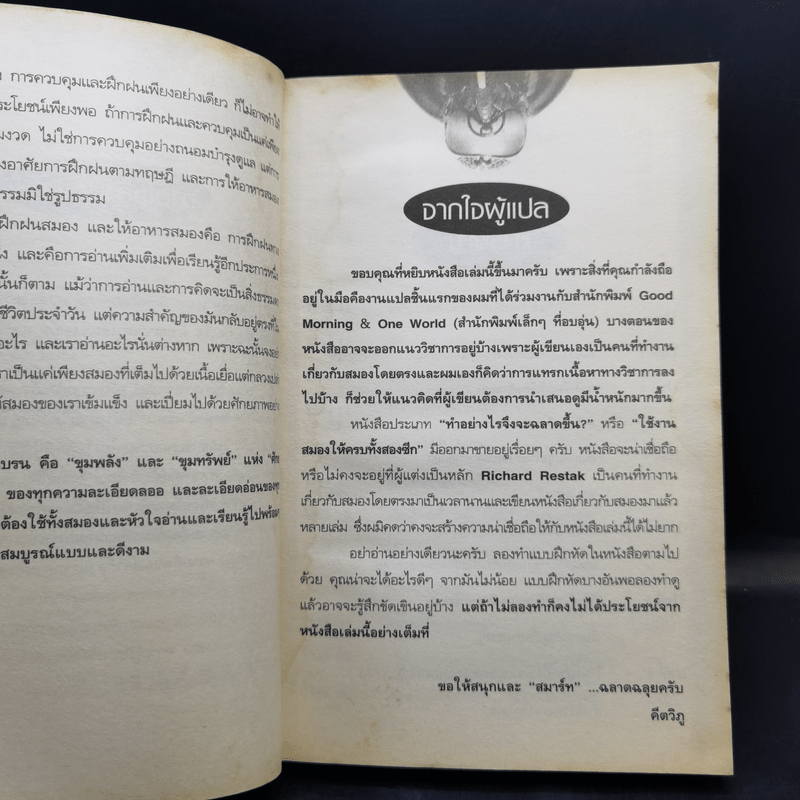 การควบคุมและฝึกฝนเพียงอย่างเดียว ก็ไม่อาจทำให้
ประโยชน์เพียงพอ ถ้าการฝึกฝนและควบคุมเป็นแค่เพียง
มงวด ไม่ใช่การควบคุมอย่างถนอมบำรุงดูแล แต่การ
งอาศัยการฝึกฝนตามทฤษฎี และการให้อาหารสมอง
ธรรมมิใช่รูปธรรม
ฝึกฝนสมอง และให้อาหารสมองคือ การฝึกฝน
และคือการอ่านเพิ่มเติมเพื่อเรียนรู้อีกประการหนึ่ง
นั้นก็ตาม แม้ว่าการอ่านและการคิดจะเป็นสิ่งธรรมดา
ชีวิตประจำวัน แต่ความสำคัญของมันกลับอยู่ตรงที่
อะไร และเราอ่านอะไรนั่นต่างหาก เพราะฉะนั้น
เป็นแค่เพียงสมองที่เต็มไปด้วยเนื้อเยื่อแต่กลวง
สมองของเราเข้มแข็ง และเปี่ยมไปด้วยศักยภาพ
บรน คือ "ขุมพลัง" และ "ขุมทรัพย์" แห่ง
ของทุกความละเอียดลออ และละเอียดอ่อนของ
ต้องใช้ทั้งสมองและหัวใจอ่านและเรียนรู้ไป
สมบูรณ์แบบและดีงาม
จากใจผู้แปล
ขอบคุณที่หยิบหนังสือเล่มนี้ขึ้นมาครับ เพราะสิ่งที่คุณกำลังถือ
อยู่ในมือคืองานแปลชิ้นแรกของผมที่ได้ร่วมงานกับสำนักพิมพ์ Good
Morning & One World (สำนักพิมพ์เล็กๆ ที่อบอุ่น) บางตอนของ
หนังสืออาจจะออกแนววิชาการอยู่บ้างเพราะผู้เขียนเองเป็นคนที่ทำงาน
เกี่ยวกับสมองโดยตรงและผมเองก็คิดว่าการแทรกเนื้อหาทางวิชาการลง
ไปบ้าง ก็ช่วยให้แนวคิดที่ผู้เขียนต้องการนำเสนอดูมีน้ำหนักมากขึ้น
หนังสือประเภท "ทำอย่างไรจึงจะฉลาดขึ้น?" หรือ "ใช้งาน
สมองให้ครบทั้งสองซีก" มีออกมาขายอยู่เรื่อยๆ ครับ หนังสือจะน่าเชื่อถือ
หรือไม่คงจะอยู่ที่ผู้แต่งเป็นหลัก Richard Restak เป็นคนที่ทำงาน
เกี่ยวกับสมองโดยตรงมาเป็นเวลานานและเขียนหนังสือเกี่ยวกับสมองมาแล้ว
หลายเล่ม ซึ่งผมคิดว่าคงจะสร้างความน่าเชื่อถือให้กับหนังสือเล่มนี้ได้ไม่ยาก
อย่าอ่านอย่างเดียวนะครับ ลองทำแบบฝึกหัดในหนังสือตามไป
ด้วย คุณน่าจะได้อะไรดีๆ จากมันไม่น้อย แบบฝึกหัดบางอันพอลองทำดู
แล้วอาจจะรู้สึกขัดเขินอยู่บ้าง แต่ถ้าไม่ลองทำก็คงไม่ได้ประโยชน์จาก
หนังสือเล่มนี้อย่างเต็มที่
ขอให้สนุกและ "สมาร์ท" ...ฉลาดฉลุยครับ
คีตวิภู